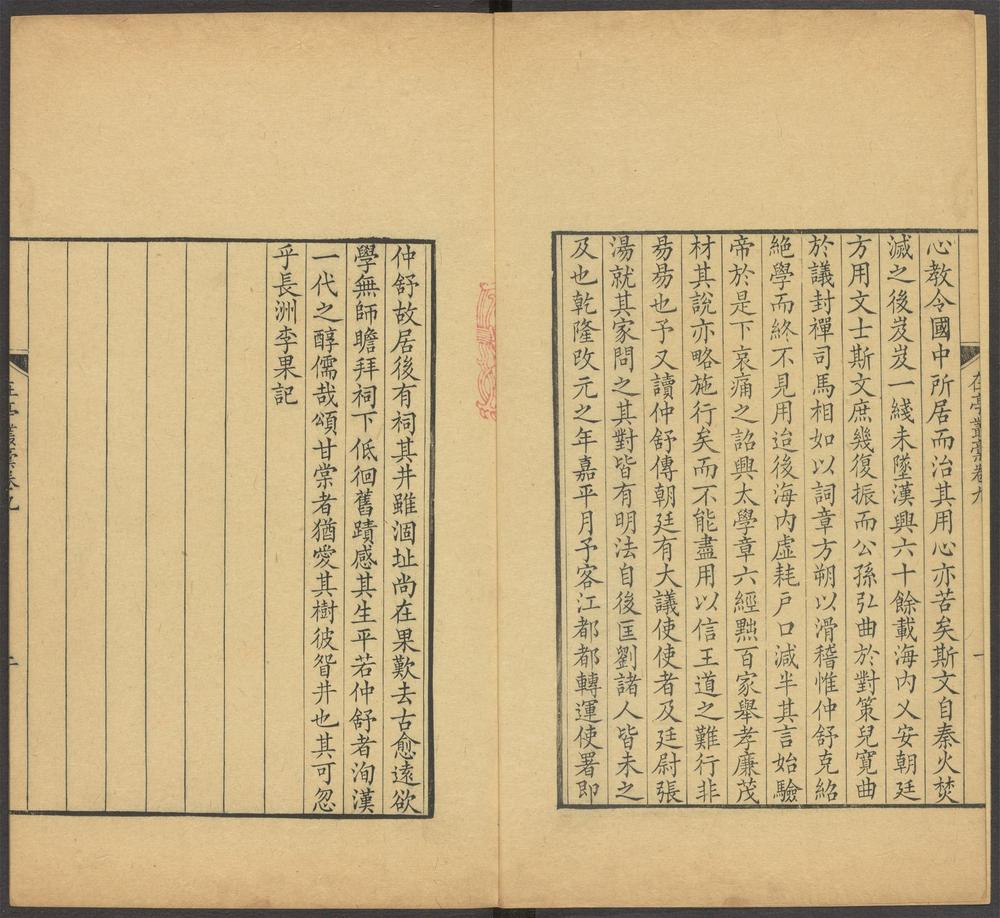 在亭叢稾卷九
一
心教令國中所居而治其用心亦苦矣斯文自秦火焚
滅之後岌岌一綫未墜漢興六十餘載海内乂安朝廷
方用文士斯文庶幾復振而公孫弘曲於對策兒寬曲
於議封禪司馬相如以詞章方朔以滑稽惟仲舒克紹
絶學而終不見用迨後海内虛耗戶口減半其言始驗
帝於是下哀痛之詔興太學章六經黜百家舉孝廉茂
材其說亦略施行矣而不能盡用以信王道之難行非
易易也予又讀仲舒傳朝廷有大議使使者及廷尉張
湯就其家問之其對皆有明法自後匡劉諸人皆未之
及也乾隆改元之年嘉平月予客江都都轉運使署即
仲舒故居後有祠其井雖涸址尚在果歎去古愈遠欲
學無師瞻拜祠下低徊舊蹟感其生平若仲舒者洵漢
一代之醇儒哉頌甘棠者猶愛其樹彼眢井也其可忽
乎長洲李果記
在亭叢稾卷九